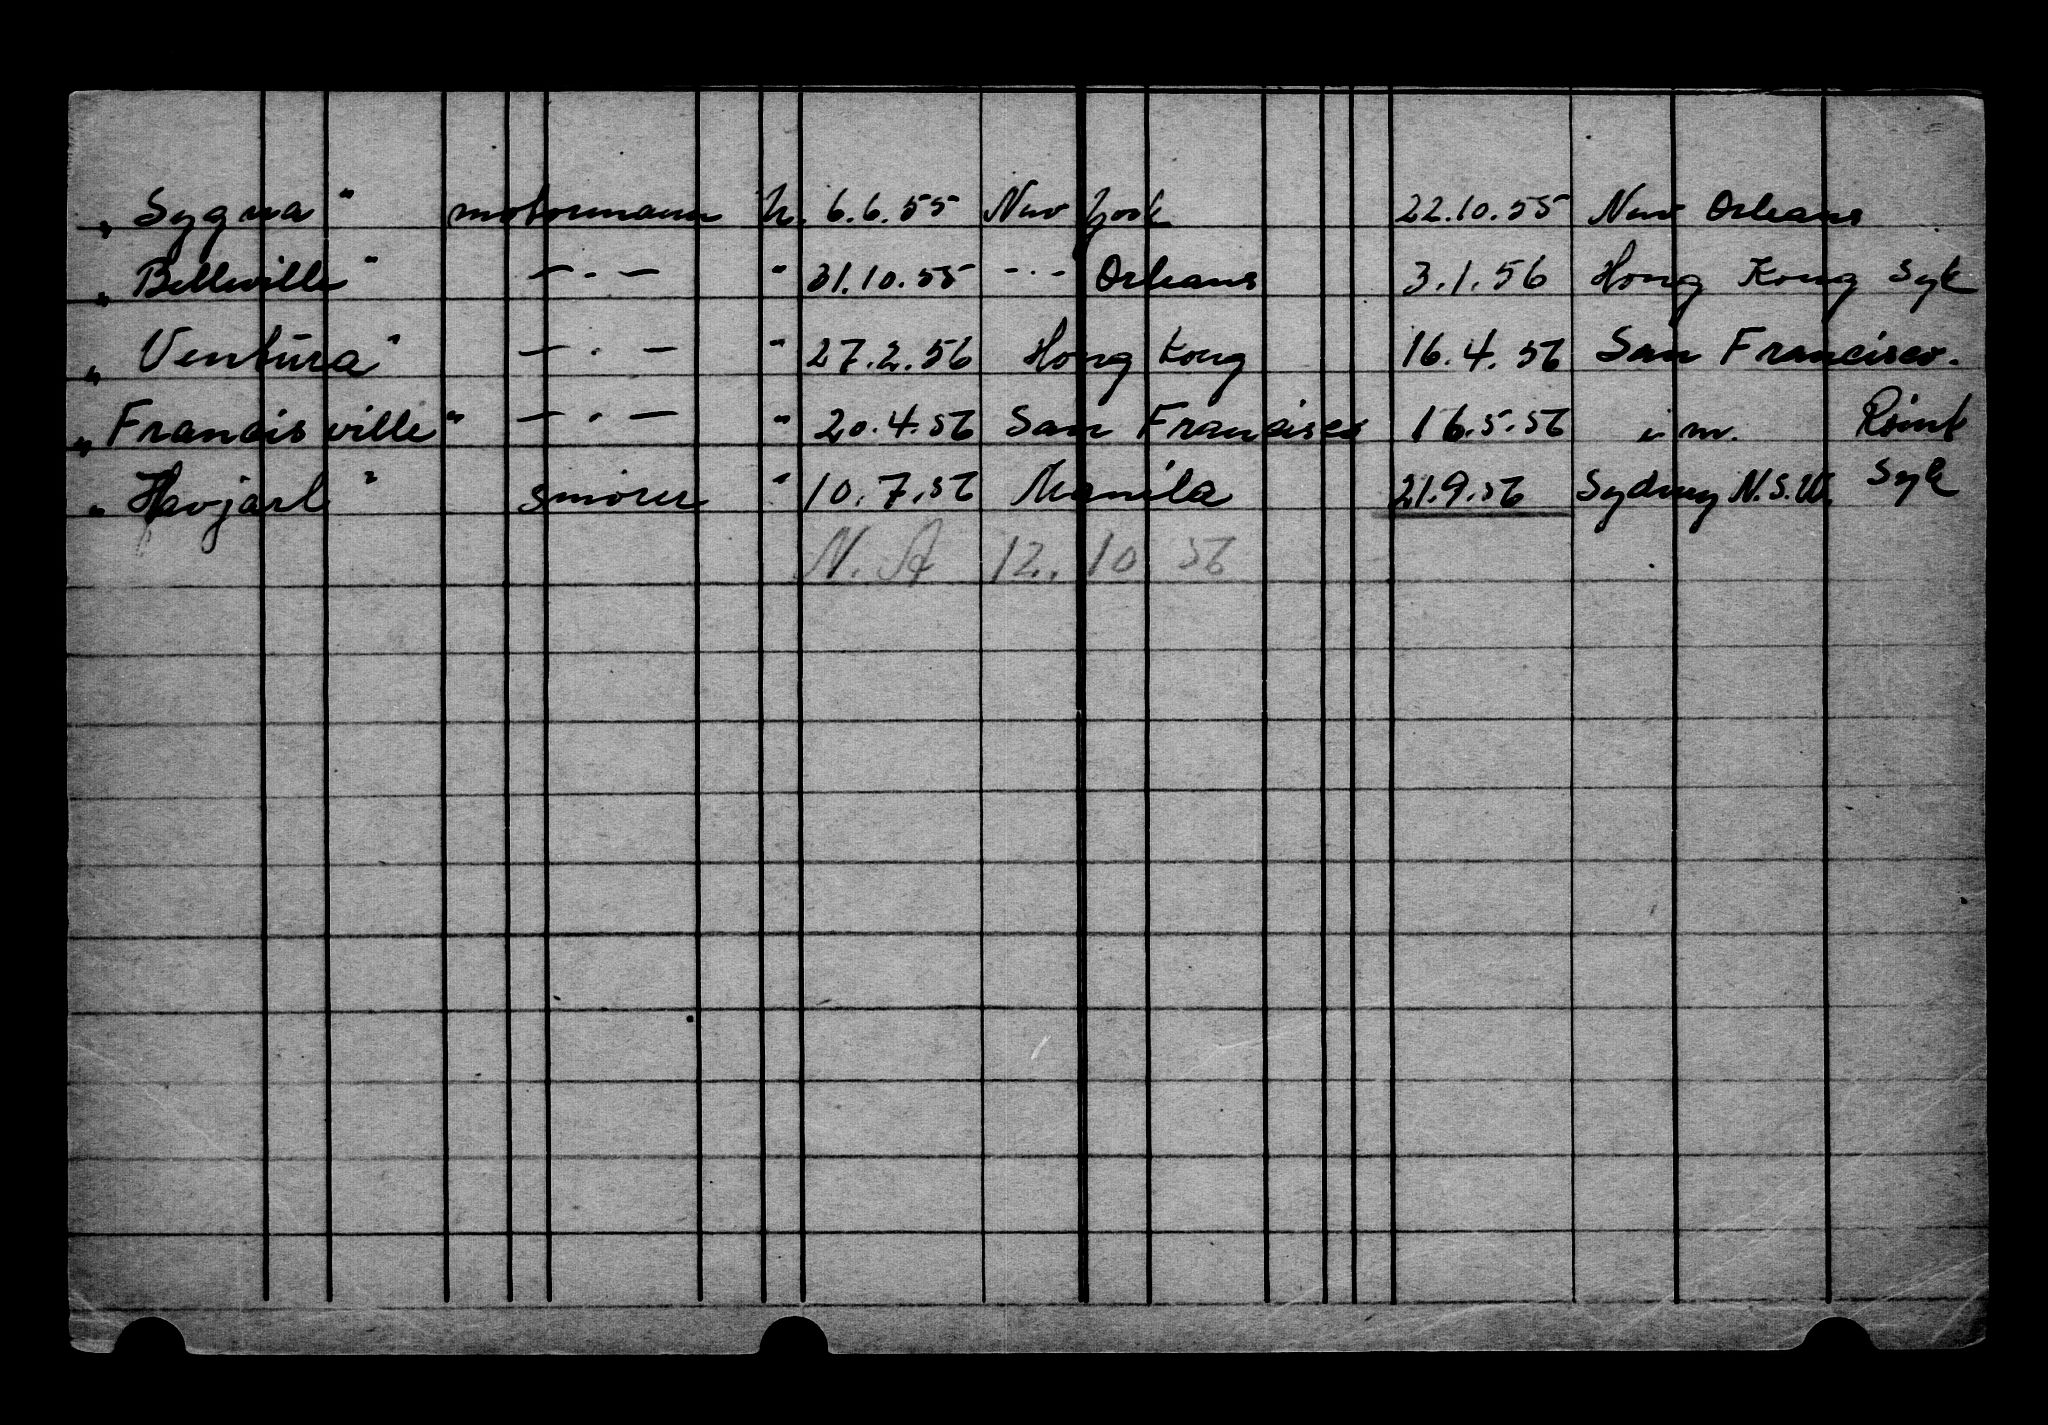 „Sygna" motormann h. 6.6.55 New York 22.10.55 New Orleans
„Belleville" — · — " 31.10.55 - · - Orleans 3.1.56 Hong Kong Syk
„Ventura" — · — " 27.2.56 Hong Kong 16.4.56 San Francisco.
„Francisville" — · — " 20.4.56 San Francisco 16.5.56 i m. Rømt
„Havjarl" smører " 10.7.56 Manila 21.9.56 Sydney N.S.W. Syk
N. A 12. 10 56